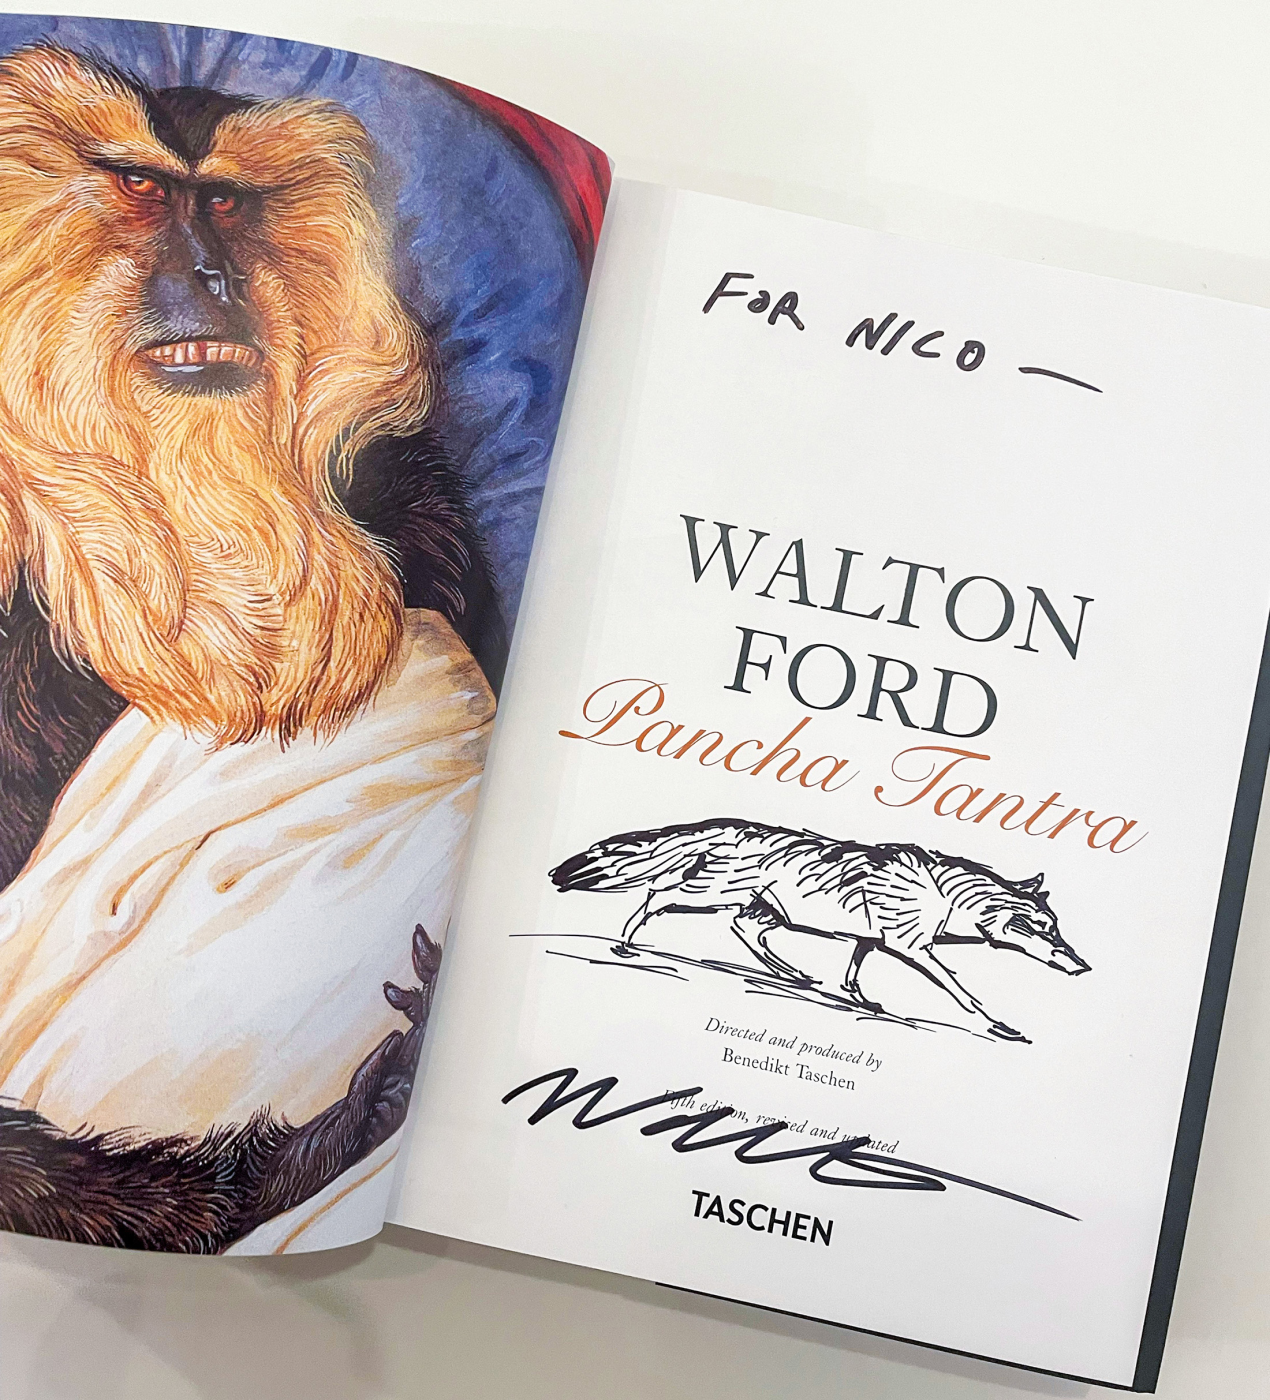 FOR NICO —
WALTON
FORD
Pancha Tantra
Directed and produced by
Benedikt Taschen
Fifth edition, revised and updated
TASCHEN